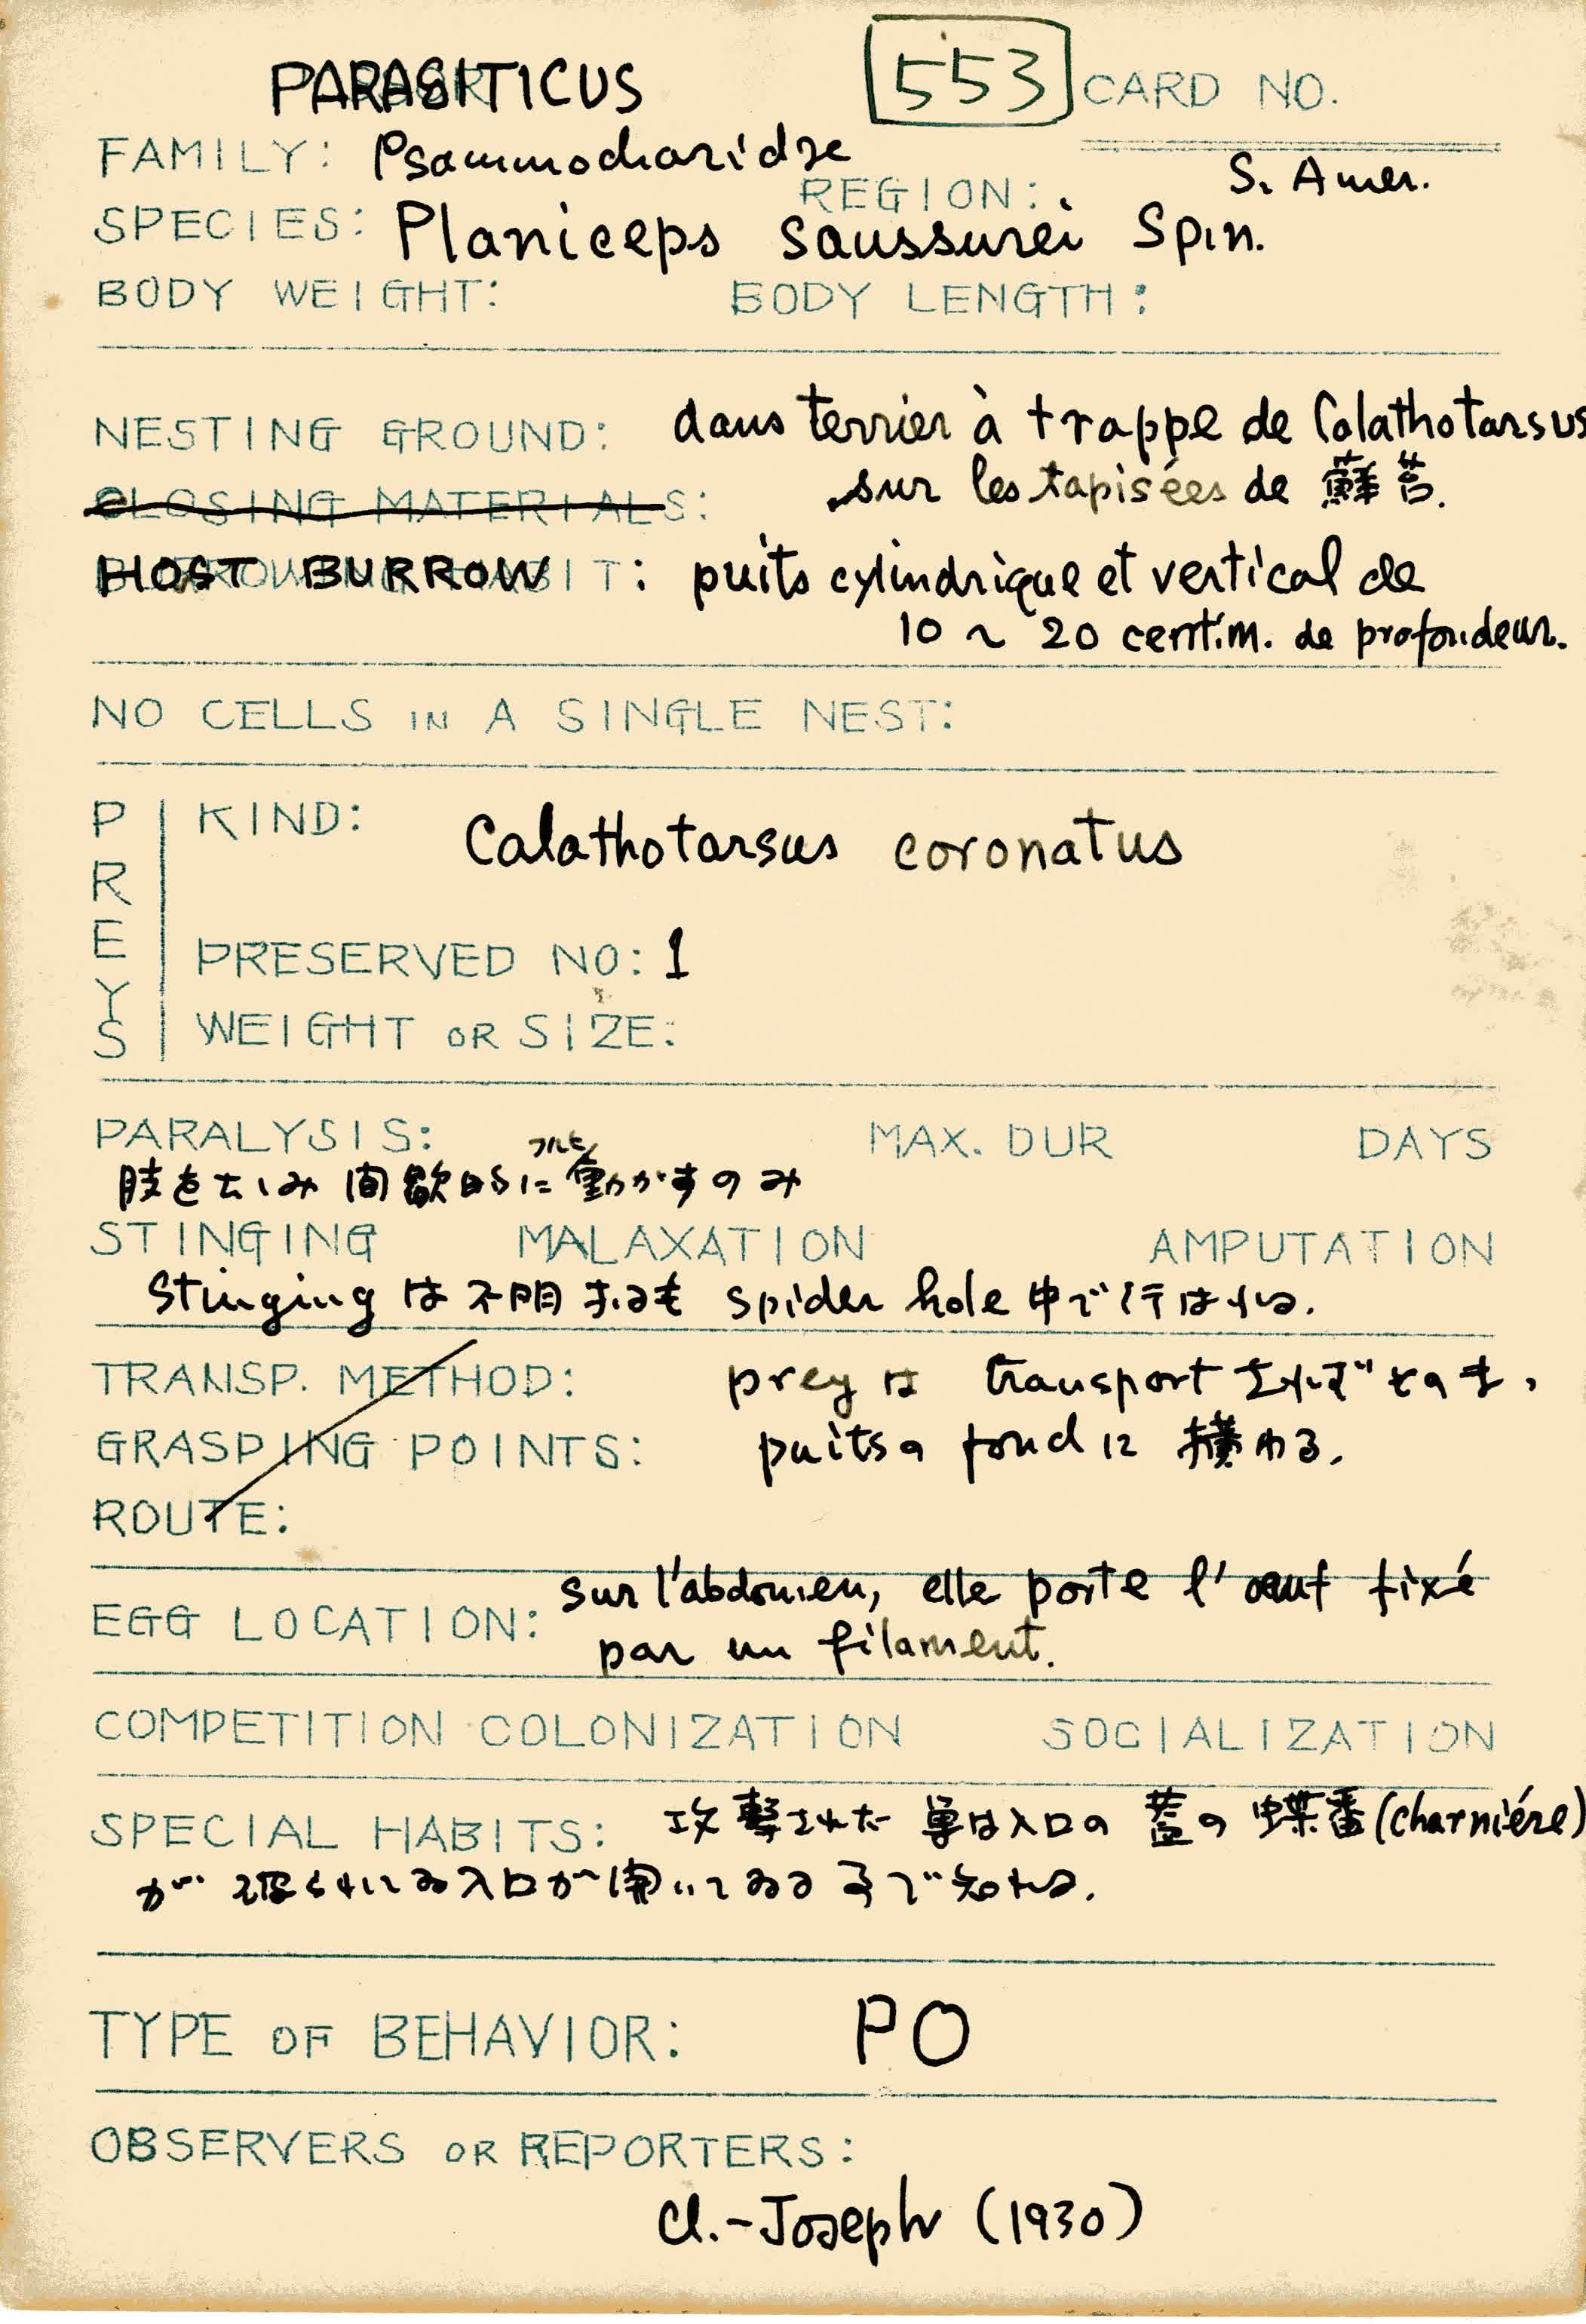 PARASITICUS 553 CARD NO.
FAMILY: Psammocharidae
REGION: S. Amer.
SPECIES: Planiceps saussurei Spin.
BODY WEIGHT: BODY LENGTH:
NESTING GROUND: dans terrier à trappe de Calathotarsus
sur les tapisées de 蘚苔.
CLOSING MATERIALS:
HOST BURROW : puits cylindrique et vertical de
10 ~ 20 centim. de profondeur.
NO CELLS IN A SINGLE NEST:
PREYS
KIND: Calathotarsus coronatus
PRESERVED NO: 1
WEIGHT OR SIZE:
PARALYSIS: MAX. DUR DAYS
フルヒ
肢をたゝみ間歇的に動かすのみ
STINGING MALAXATION AMPUTATION
Stinging は不明なるも spider hole 中で行はれる.
TRANSP. METHOD: prey は transport されずそのまゝ
GRASPING POINTS: puits の fond に横わる.
ROUTE:
EGG LOCATION: sur l'abdomen, elle porte l'œuf fixé
par un filament.
COMPETITION COLONIZATION SOCIALIZATION
SPECIAL HABITS: 攻撃された巣は入口の蓋の蝶番(charniére)
が破られてゐて入口が開いてゐる事で知れる.
TYPE OF BEHAVIOR: PO
OBSERVERS OR REPORTERS:
Cl.-Joseph (1930)